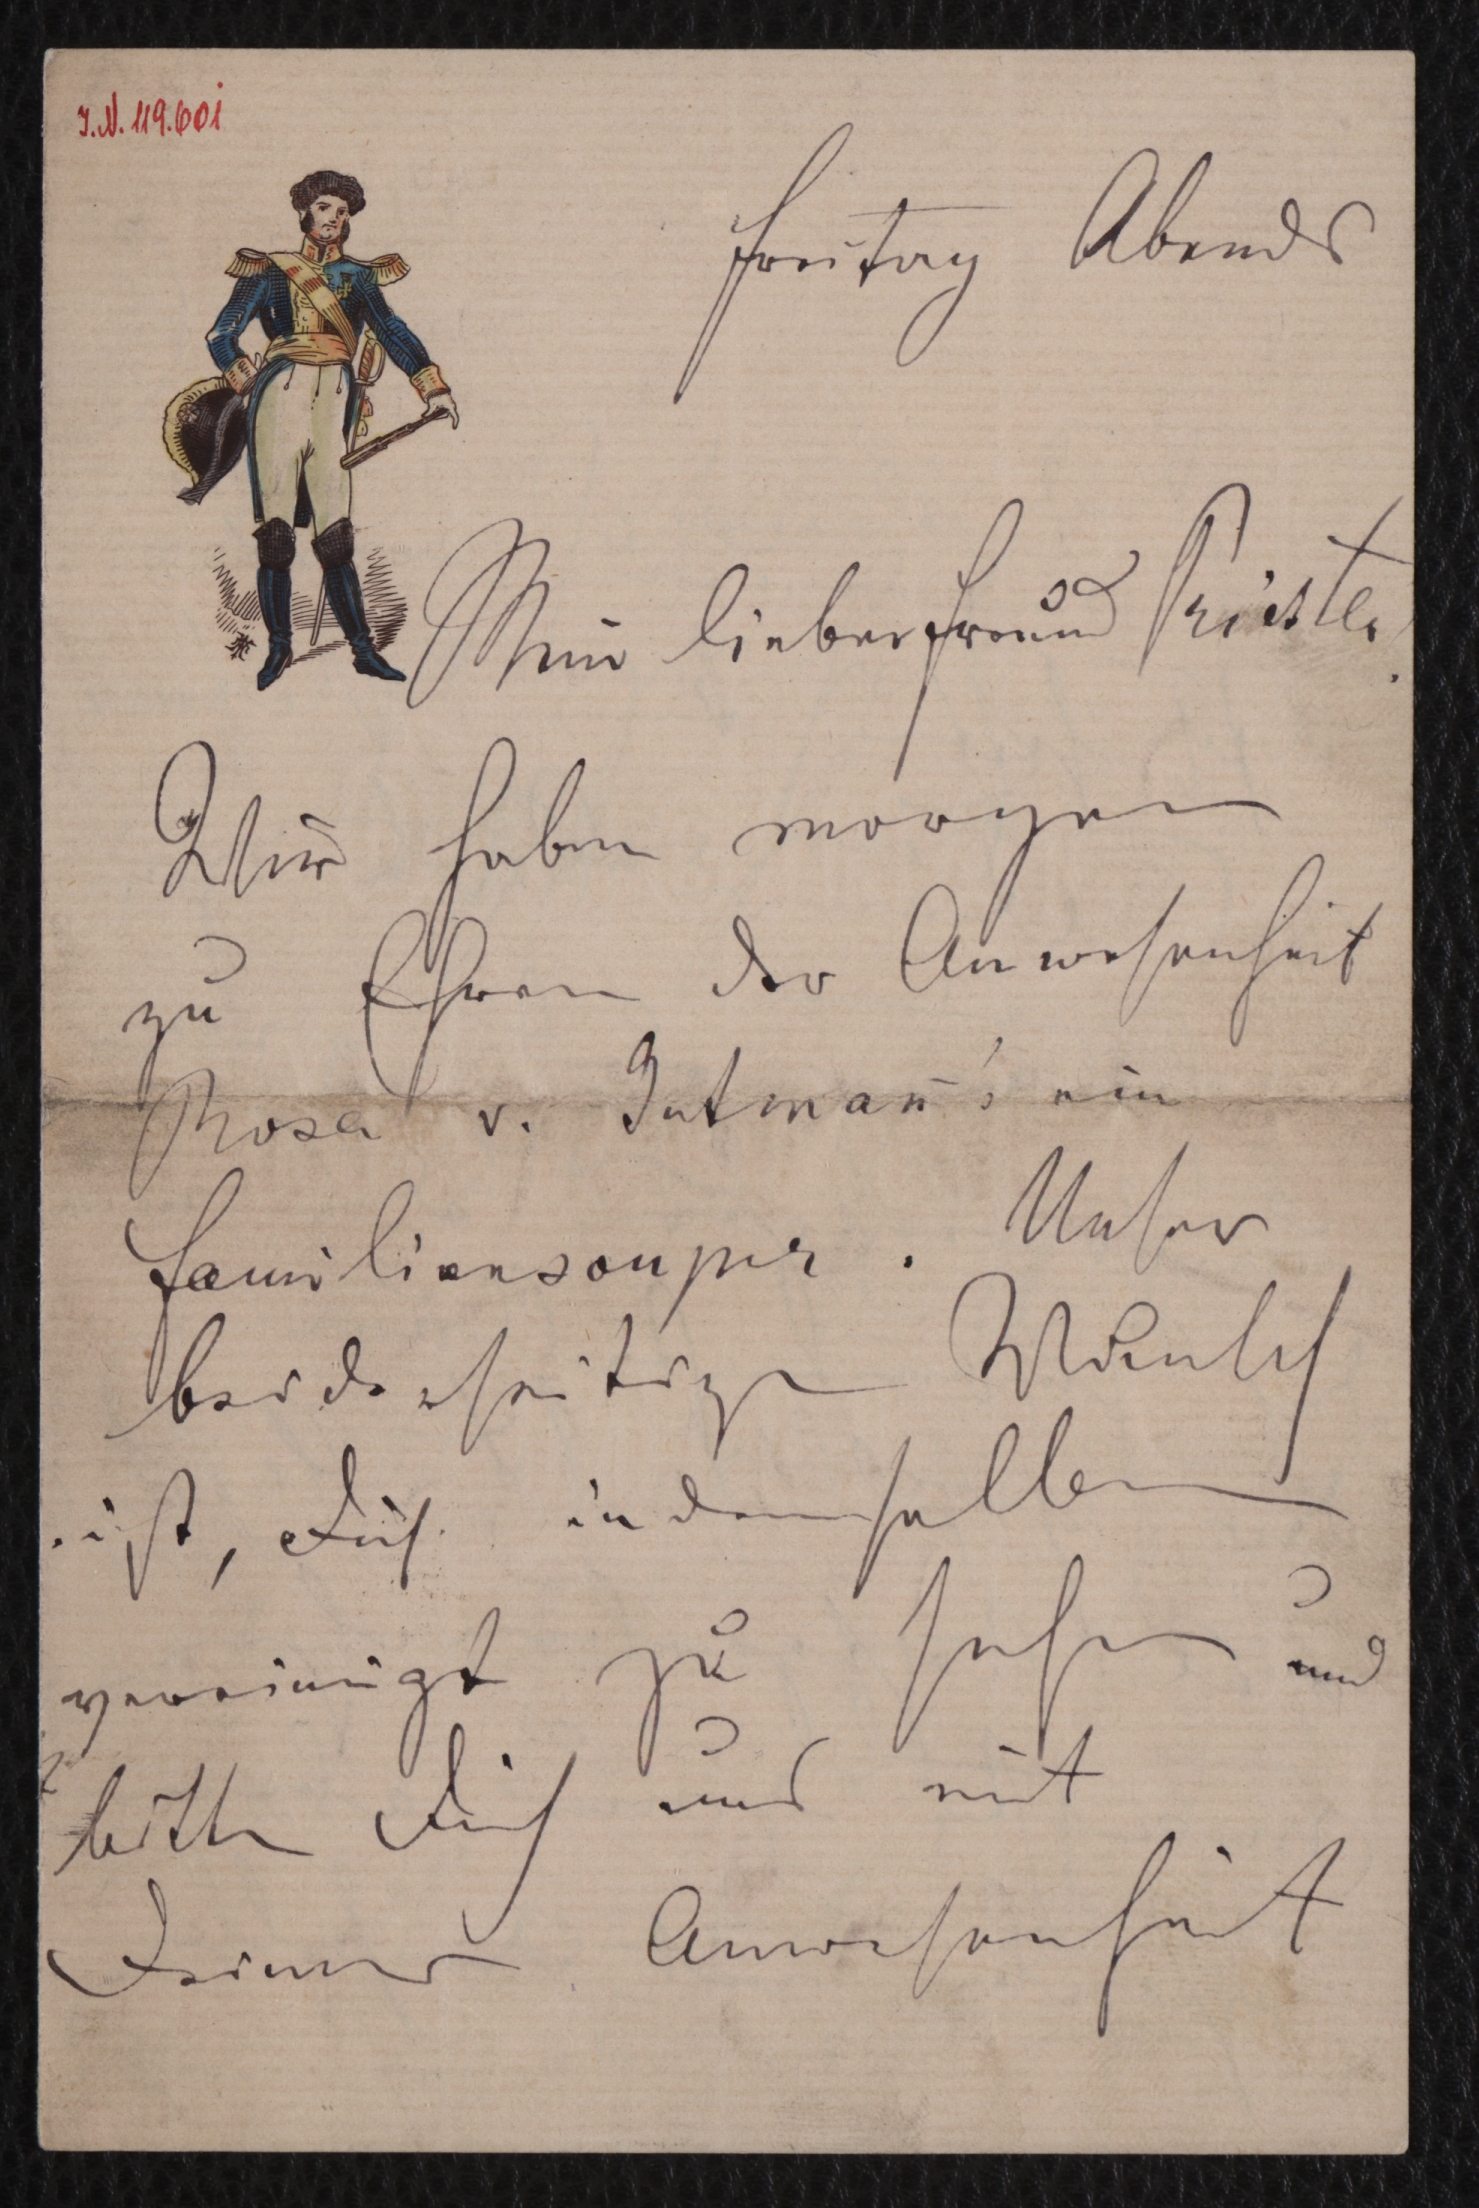 J.N. 119.601
Freitag Abends
Mein lieber Freund Priester!
Wir haben morgen
zu Ehren der Anwesenheit
Rosa v. Gutmañ's ein
Familiensouper. Unser
beiderseitiger Wunsch
ist, Dich in demselben
vereinigt zu sehen und
bitte Dich uns mit
Deiner Anwesenheit